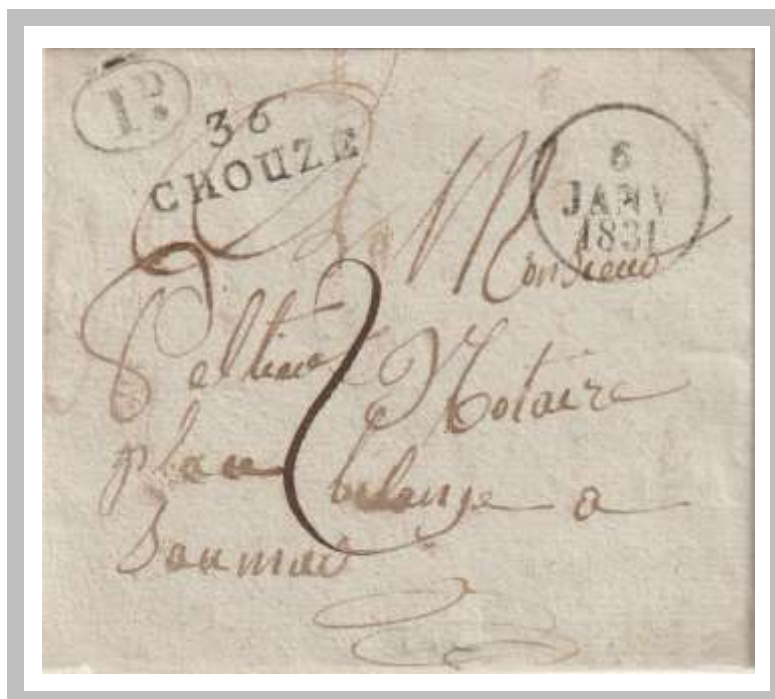 1D
36
CHOUZE
6
JANV
1831
Monsieur
Notaire
place a
Saumur
2